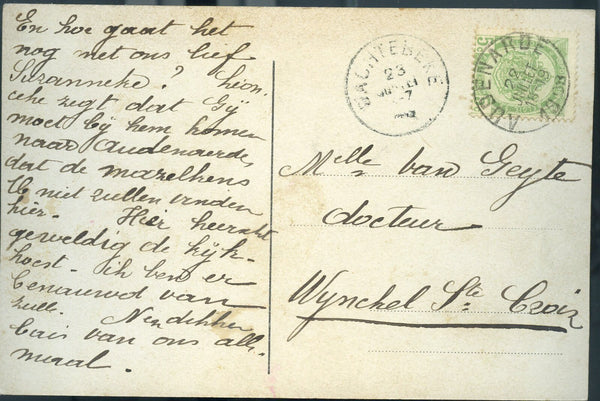 En hoe gaat het
nog met ons lief
Suzanneke? Lion
che zegt dat Gij
moet bij hem komen
naar Audenaerde,
dat de mazelkens
U niet zullen vinden
hier. Hier heerscht
geweldig de kijk-
hoest. ik ben er
benauwd van
zulle. Nen dikken
bais van ons alle-
maal.
BACHTEBEKE
23
7
AUDENARDE
22
Melle Van Geyte
docteur
Wynckel Ste Croix